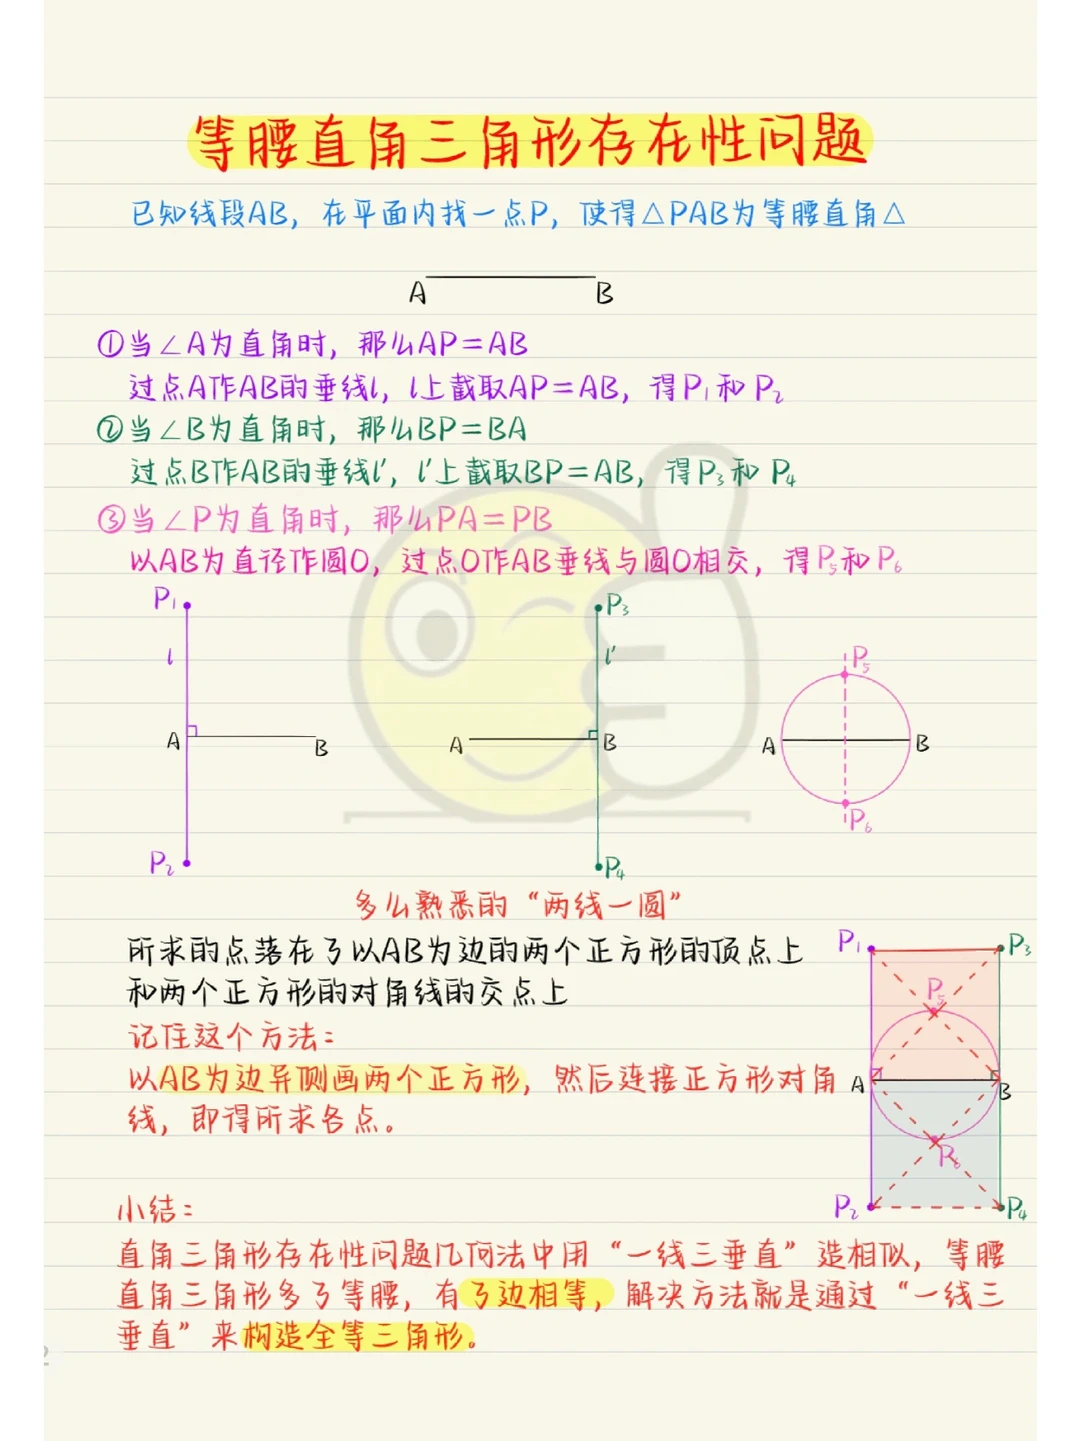 等腰直角三角形存在性问题
已知线段AB，在平面内找一点P，使得△PAB为等腰直角△
A B
①当∠A为直角时，那么AP=AB
过点A作AB的垂线l，l上截取AP=AB，得P₁和P₂
②当∠B为直角时，那么BP=BA
过点B作AB的垂线l'，l'上截取BP=AB，得P₃和P₄
③当∠P为直角时，那么PA=PB
以AB为直径作圆O，过点O作AB垂线与圆O相交，得P₅和P₆
P₁ P₃
l l' P₅
A B A B A B
P₆
P₂ P₄
多么熟悉的“两线一圆”
所求的点落在了以AB为边的两个正方形的顶点上
和两个正方形的对角线的交点上
记住这个方法：
以AB为边异侧画两个正方形，然后连接正方形对角
线，即得所求各点。
P₁ P₃
P₅
A B
P₆
P₂ P₄
小结：
直角三角形存在性问题几何法中用“一线三垂直”造相似，等腰
直角三角形多了等腰，有了边相等，解决方法就是通过“一线三
垂直”来构造全等三角形。
2